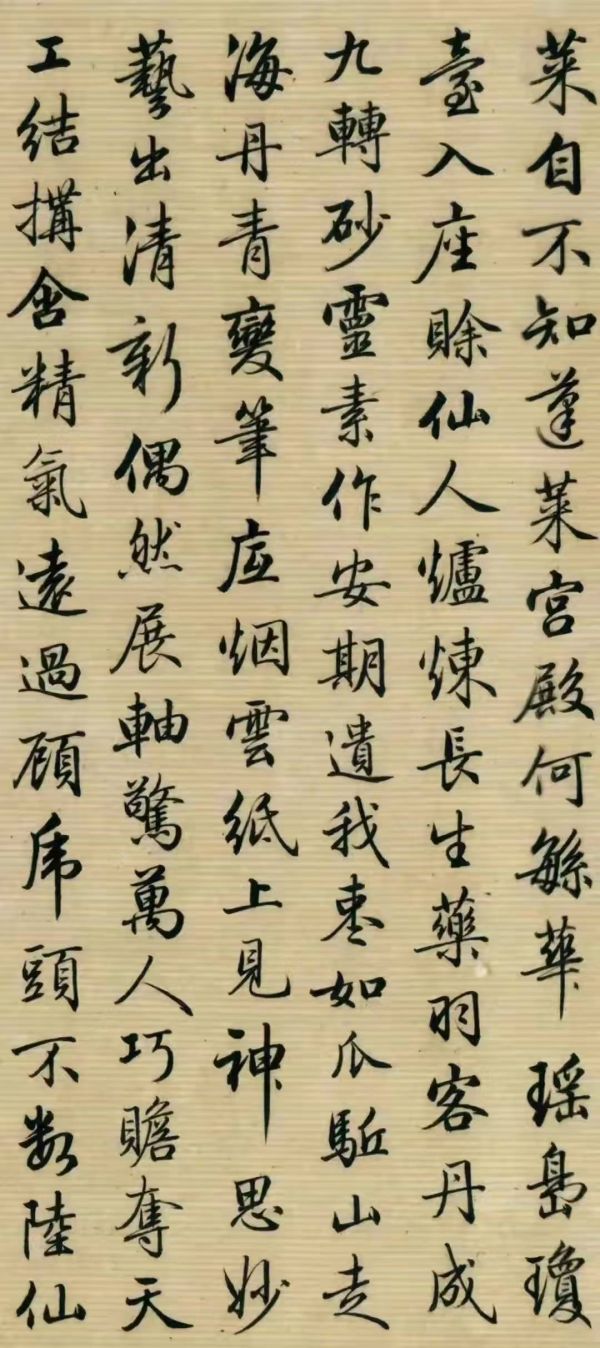 菜自不知蓬萊宮殿何繁華瑶島瓊
臺入座賒仙人爐煉長生藥羽客丹成
九轉砂靈素作安期遺我棗如瓜駈山走
海丹青變筆底烟雲紙上見神思妙
藝出清新偶然展軸驚萬人巧贍奪天
工結搆含精氣遠過顧虎頭不數陸仙